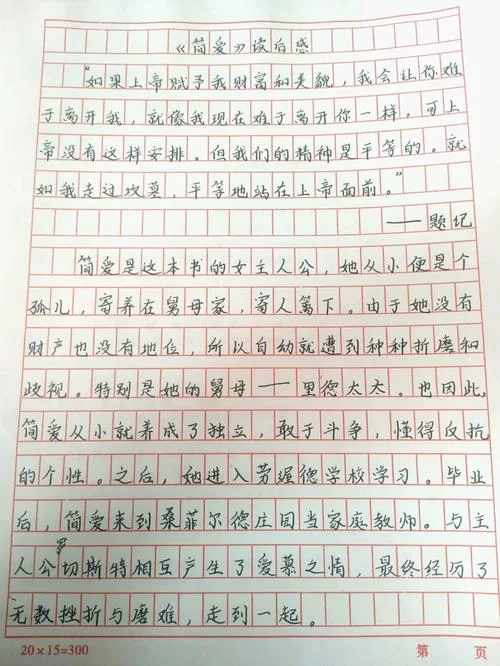 《简爱》读后感
“如果上帝赋予我财富和美貌，我会让你难
于离开我，就像我现在难于离开你一样，可上
帝没有这样安排。但我们的精神是平等的。就
如我走过坟墓，平等地站在上帝面前。”
——题记
简爱是这本书的女主人公，她从小便是个
孤儿，寄养在舅母家，寄人篱下。由于她没有
财产也没有地位，所以自幼就遭到种种折磨和
歧视。特别是她的舅母——里德太太。也因此，
简爱从小就养成了独立，敢于斗争，懂得反抗
的个性。之后，她进入劳渥德学校学习。毕业
后，简爱来到桑菲尔德庄园当家庭教师。与主
人公罗切斯特相互产生了爱慕之情，最终经历了
无数挫折与磨难，走到一起。
20×15=300 第 页